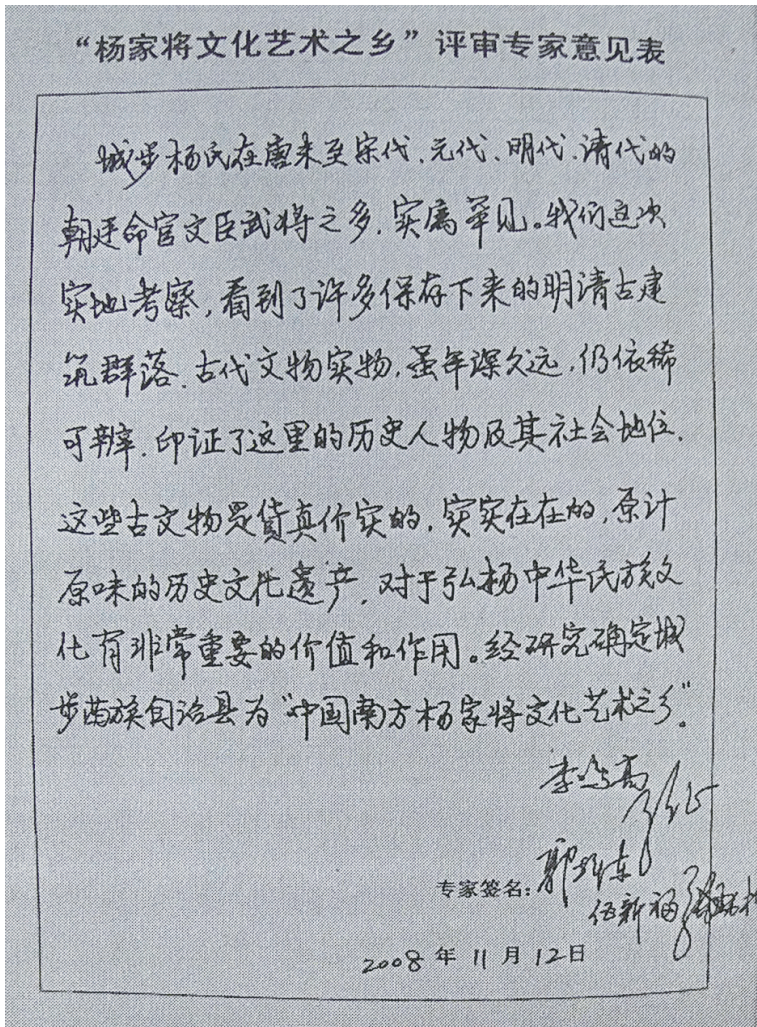 “杨家将文化艺术之乡”评审专家意见表
城步杨氏在唐末至宋代、元代、明代、清代的
朝廷命官文臣武将之多，实属罕见。我们这次
实地考察，看到了许多保存下来的明清古建
筑群落、古代文物实物，虽年深久远，仍依稀
可辨，印证了这里的历史人物及其社会地位.
这些古文物是货真价实的，实实在在的，原计
原味的历史文化遗产，对于弘杨中华民族文
化有非常重要的价值和作用。经研究确定城
步苗族自治县为“中国南方杨家将文化艺术之乡”。
专家签名：
伍新福
2008年11月12日